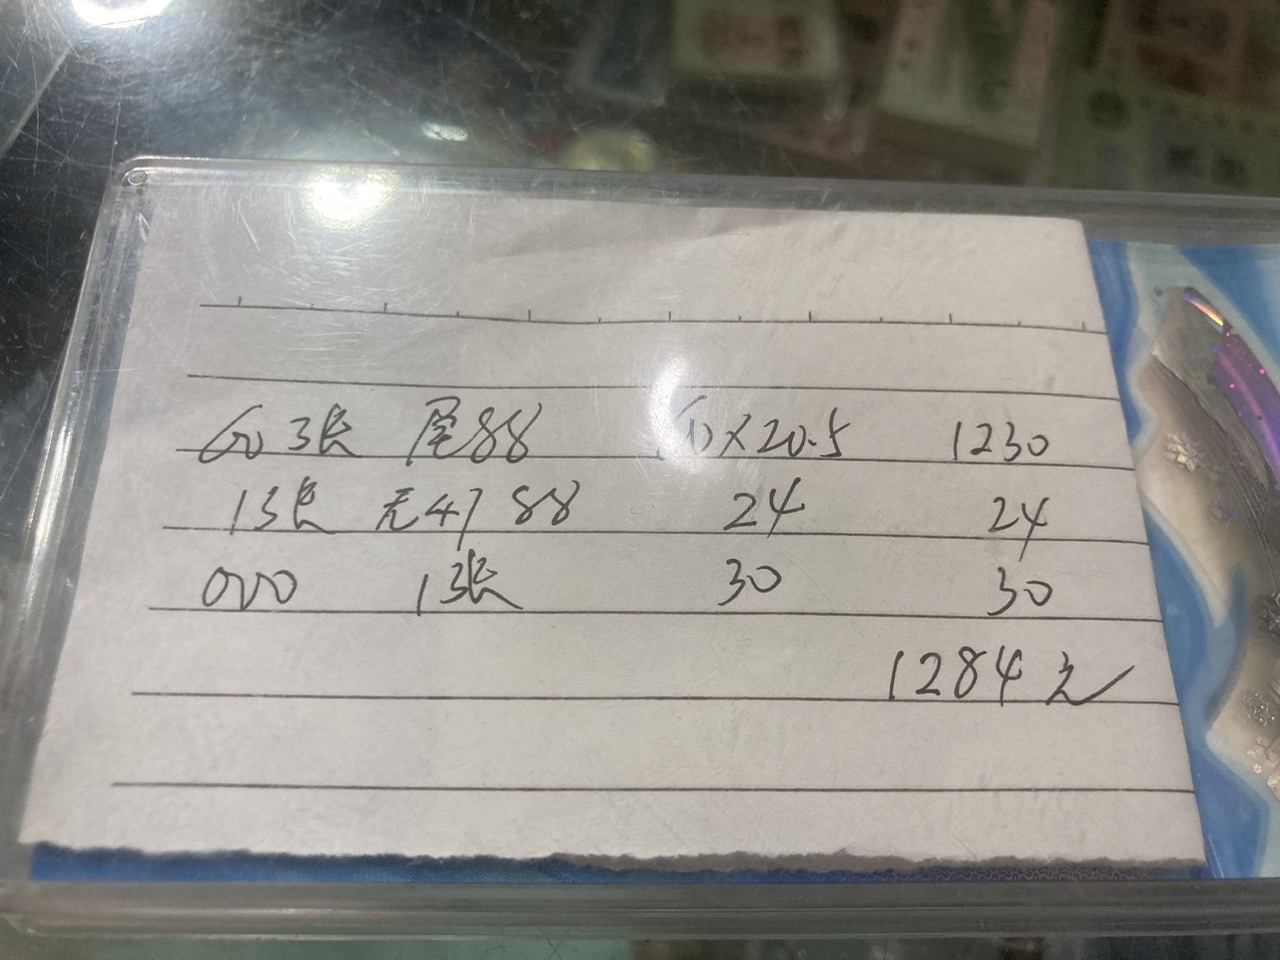 60张 尾88 60×20.5 1230
1张 无47 88 24 24
000 1张 30 30
1284元